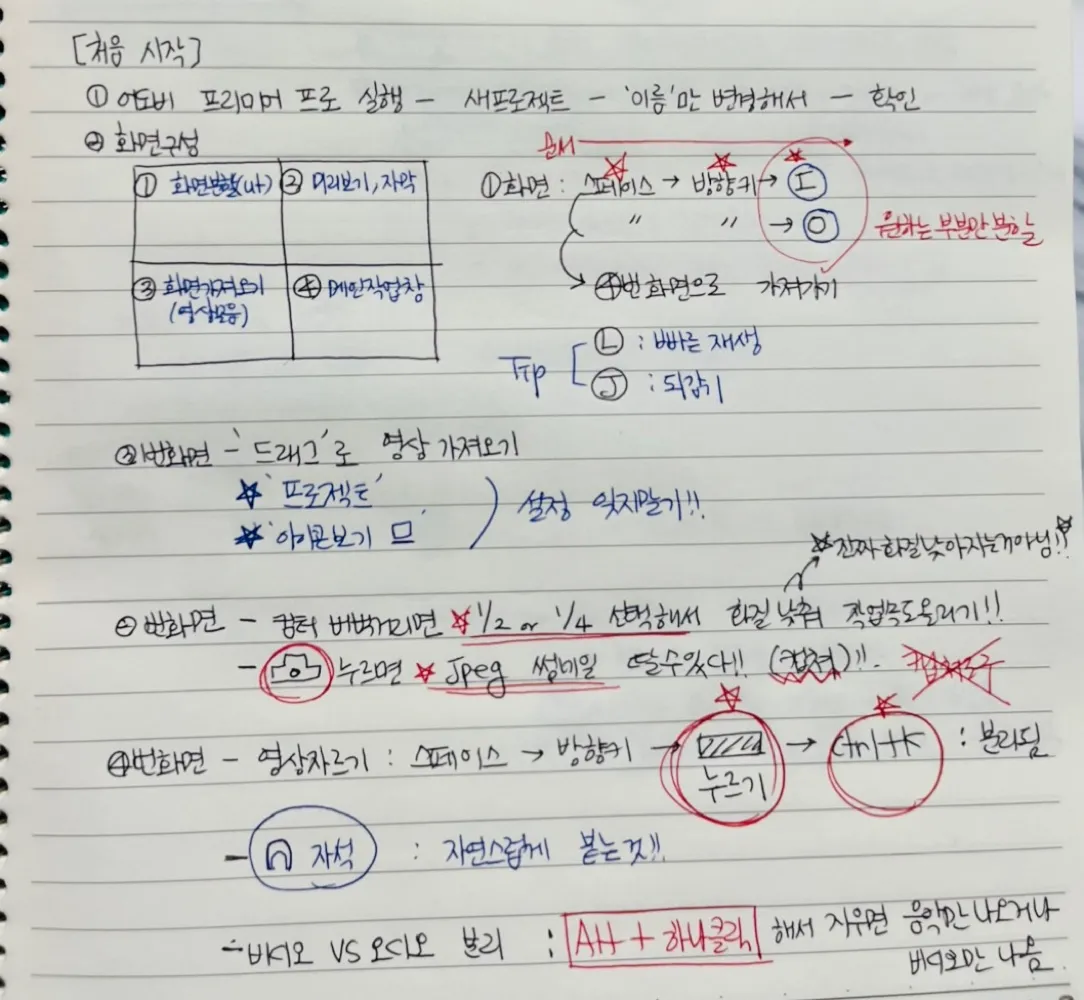 [처음 시작]
① 어도비 프리미어 프로 실행 - 새프로젝트 - '이름'만 변경해서 - 확인
② 화면구성
① 화면분할(나) ② 미리보기, 자막
③ 화면가져오기 (영상모음) ④ 메인작업창
순서
①화면 : 스페이스 → 방향키 → I
〃 〃 → O 원하는 부분만 분할
④번 화면으로 가져가기
Tip [ L : 빠른 재생
J : 되감기
③번화면 - '드래그'로 영상 가져오기
☆ '프로젝트'
☆ '아이콘보기 ㅁ' ) 설정 잊지말기!!
☆진짜 화질 낮아지는거 아님!!☆
②번화면 - 컴터 버벅거리면 ☆ 1/2 or 1/4 선택해서 화질 낮춰 작업속도올리기!!
- 누르면 ☆ Jpeg 썸네일 딸 수 있다!! (캡쳐)!!.
④번화면 - 영상자르기 : 스페이스 → 방향키 → 누르기 → ctrl+K : 분리됨
- 자석 : 자연스럽게 붙는것!!
- 비디오 VS 오디오 분리 : Alt + 하나클릭 해서 지우면 음악만 나오거나
비디오만 나옴